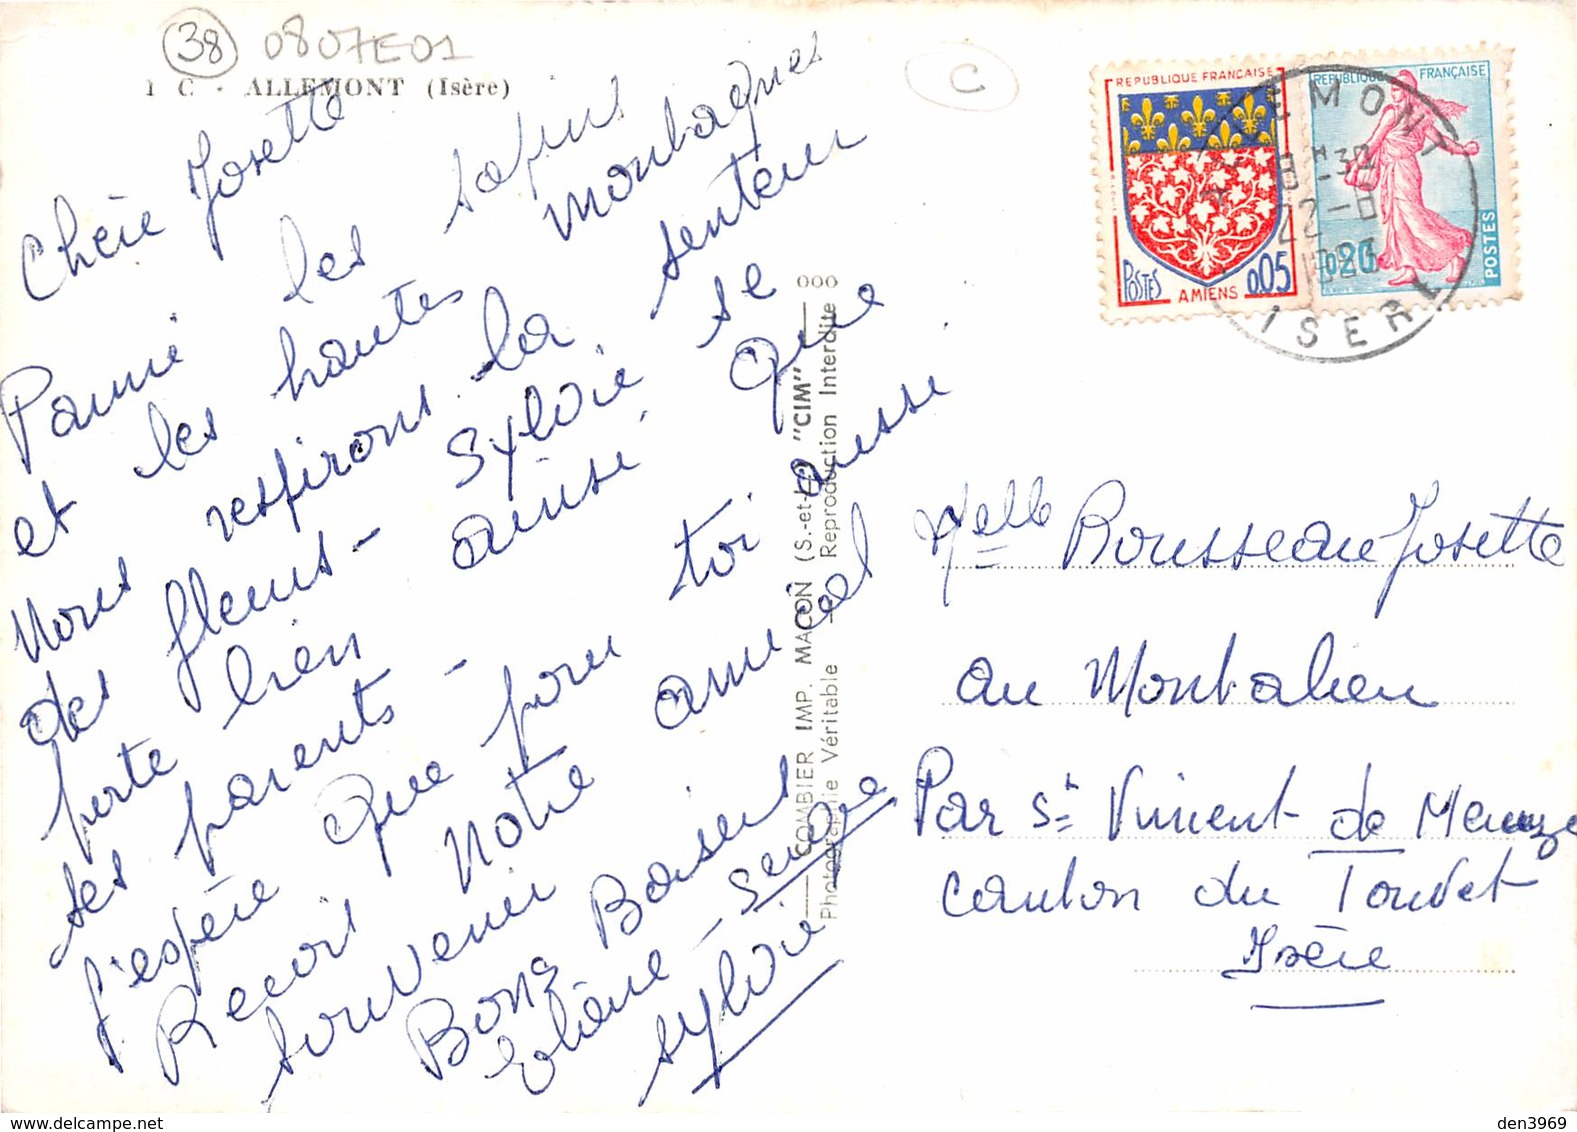 38 0807E01
C
1 C - ALLEMONT (Isère)
Chère Josette
Parmi les sapins
et les hautes montagnes
Nous respirons la senteur
des fleurs - Sylvie se
porte bien ainsi que
ses parents -
J'espère que pour toi aussi
Recois Notre amical
souvenir
Bons Baisers
Eliane - Serge
Sylvie
COMBIER IMP. MACON (S.-et-L.) "CIM"
Photographie Véritable - Reproduction Interdite
REPUBLIQUE FRANCAISE
POSTES 0,05
AMIENS
REPUBLIQUE FRANÇAISE
0,20
POSTES
ALLEMONT
ISERE
Melle Rousseau Josette
au Montalieu
Par St Vincent de Mercuze
canton du Touvet
Isère
delcampe.net
den3969